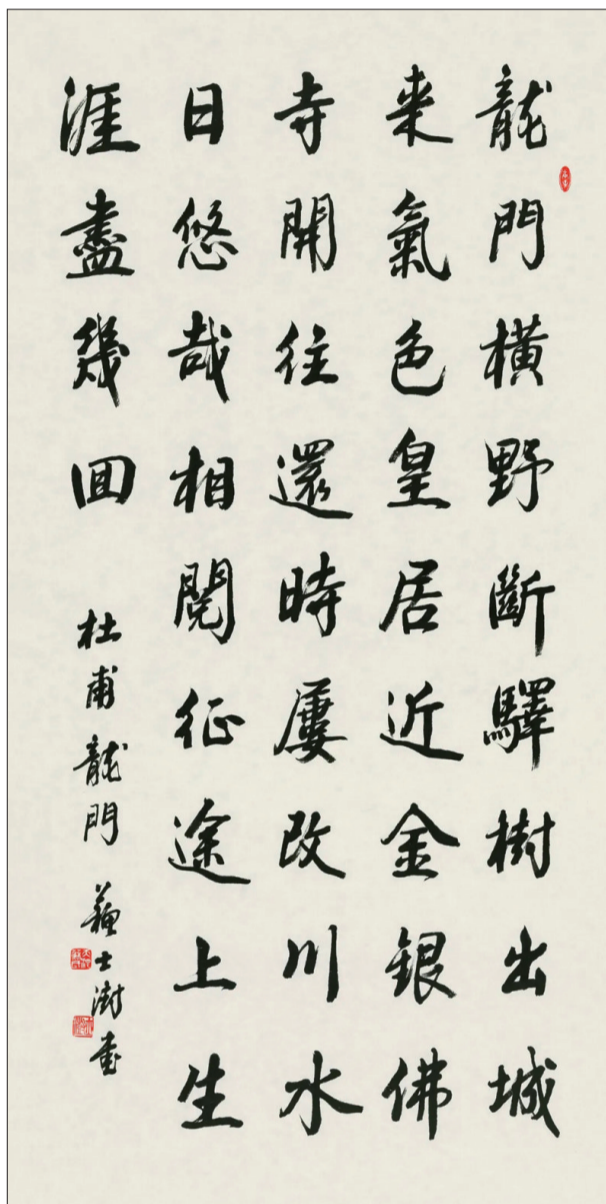 龍門橫野斷驛樹出城
来氣色皇居近金銀佛
寺開往還時屢改川水
日悠哉相閱征途上生
涯盡幾回
杜甫龍門 蘇士澍書